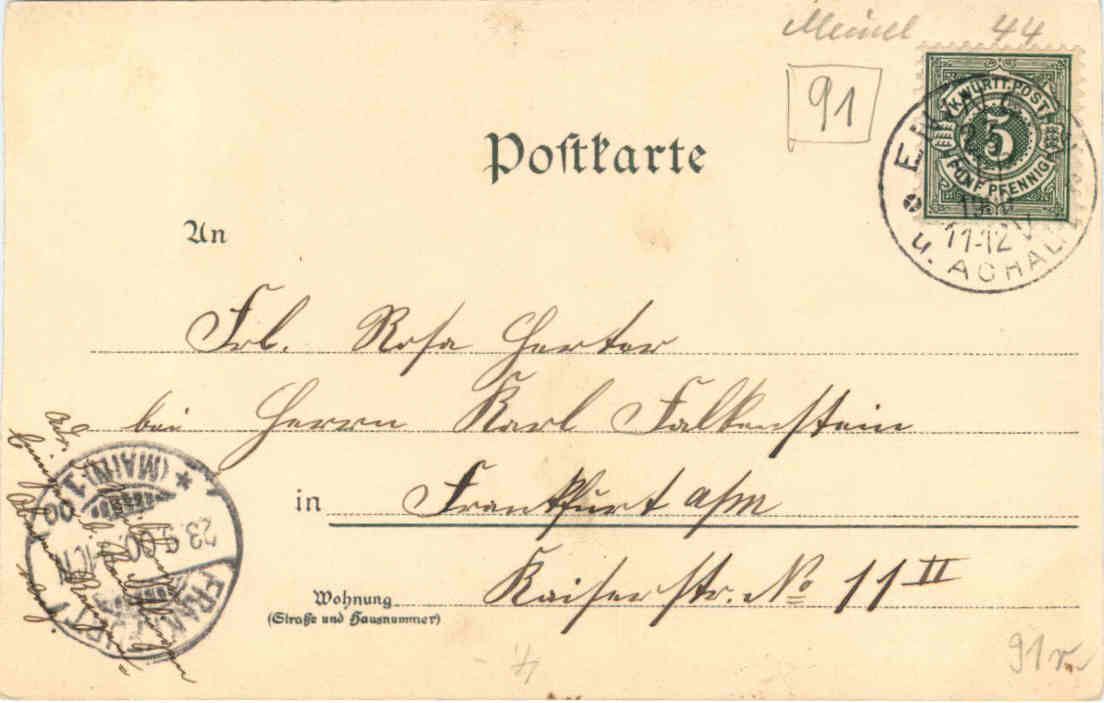 44
91
K. WÜRTT. POST
5
FÜNF PFENNIG
11-12 V
u. ACHALM
Postkarte
An
Frl. Rosa Harter
bei Herrn Karl Falkenstein
in Frankfurt a/m
Kaiserstr. No 11 II
Wohnung
(Straße und Hausnummer)
FRANKFURT
* (MAIN) 1.
23.9.00
91 v